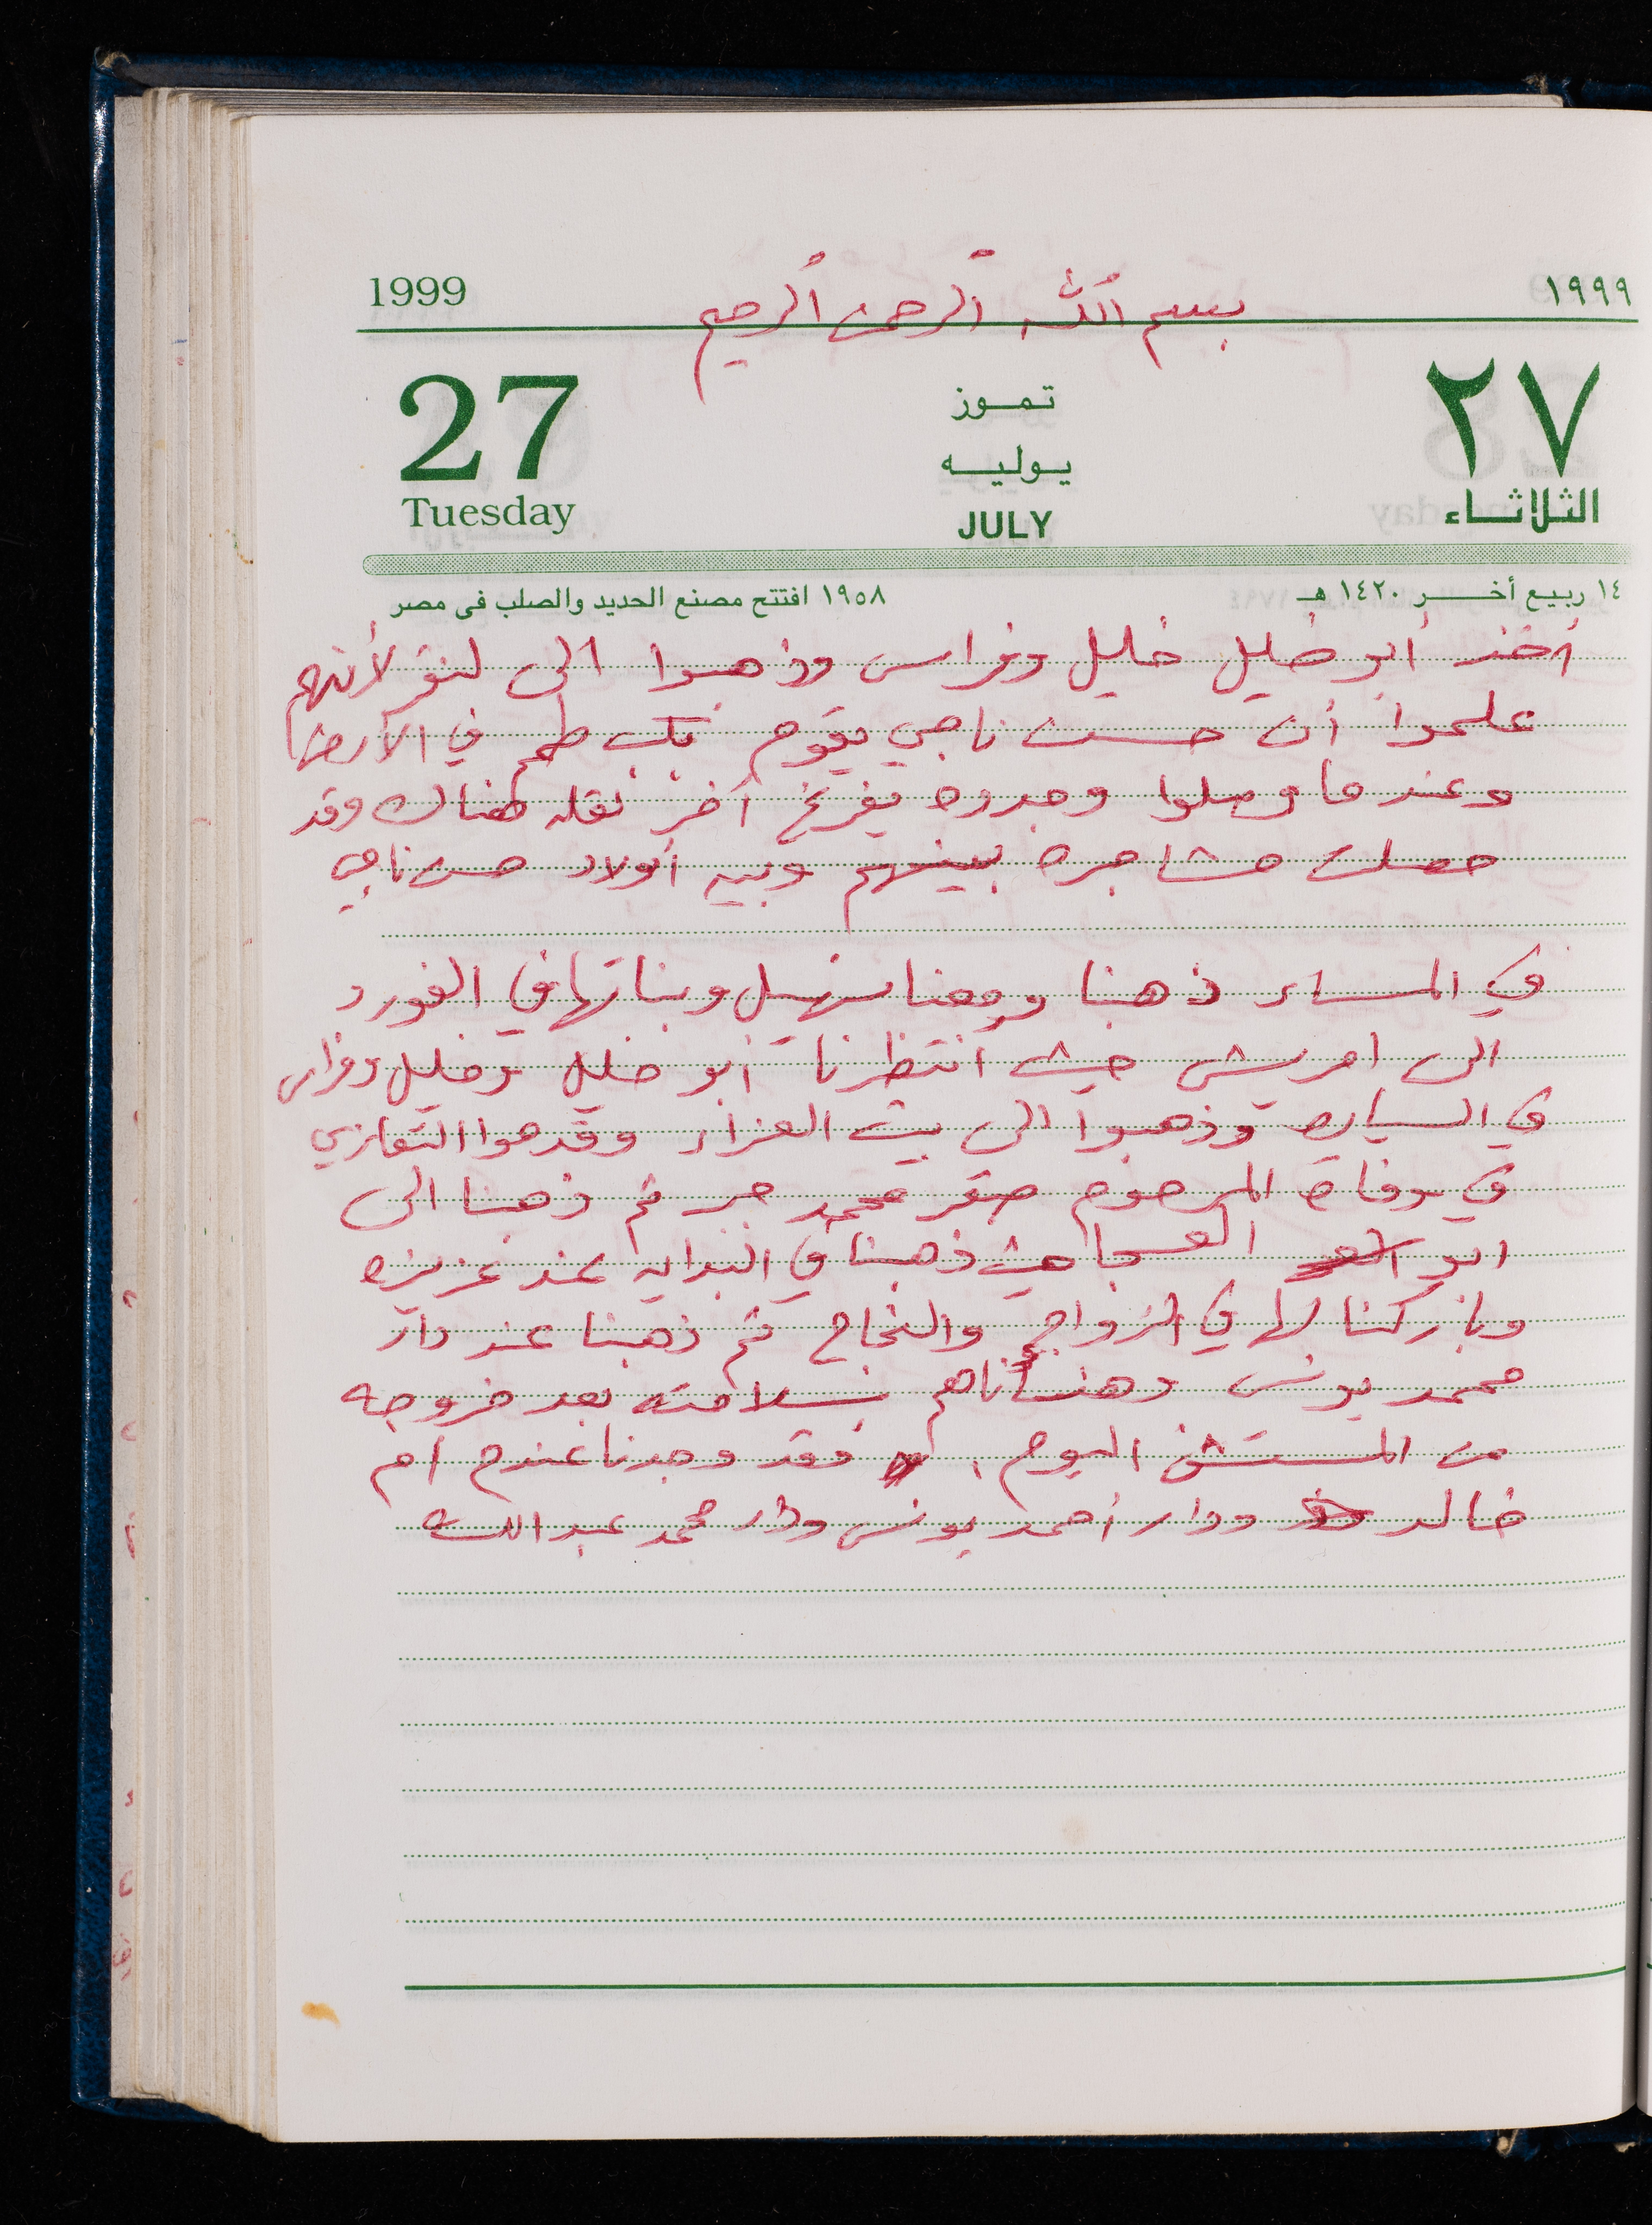 1999
بسم الله الرحمن الرحيم
١٩٩٩
27
Tuesday
تموز
يوليه
JULY
٢٧
الثلاثاء
١٤ ربيع أخر ١٤٢٠ هـ
١٩٥٨ افتتح مصنع الحديد والصلب فى مصر
أخذ أبو خليل خليل وفراس وذهبوا الى لنقر لأنهم
علموا أن حسن ناجي يقوم بكب طمم في الأرض
وعندما وصلوا وجدوه يفرغ آخر نقله هناك وقد
حصلت مشاجره بينهم وبين أولاد حسن ناجي
في المساء ذهبنا ومعنا سهيل وبناتها في الفورد
الى امريش حيث انتظرنا أبو خليل وخليل وفراس
في السياره وذهبوا الى بيت العزاء وقدموا التعازي
في وفاة المرحوم صقر محمد جبر ثم ذهبنا الى
ابو العسجا حيث ذهبنا في البدايه عند عزيزه
وباركنا لها في الزواج والنجاح ثم ذهبنا عند دار
محمد يونس وهنأناهم بسلامته بعد خروجه
من المستشفى اليوم، فقد وجدنا عندهم أم
خالد ودار أحمد يونس ودار محمد عبد الله